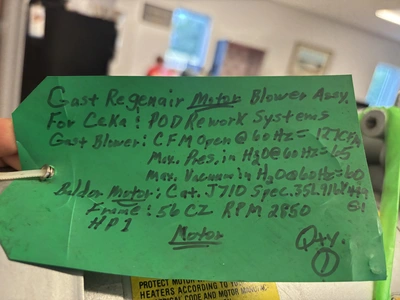 Gast Regenair Motor Blower Assy.
For CeKa : POD Rework Systems
Gast Blower: CFM Open @ 60 Hz = 127 CFM
Max. Pres. in H2O @ 60 Hz = 65
Max. Vacuum in H2O @ 60 Hz = 60
Baldor Motor: Cat. J710 Spec.
Frame: 56 CZ RPM 2850
HP 1
Motor
Qty.
1
PROTECT MOTOR
HEATERS ACCORDING TO
CODE AND MOTOR